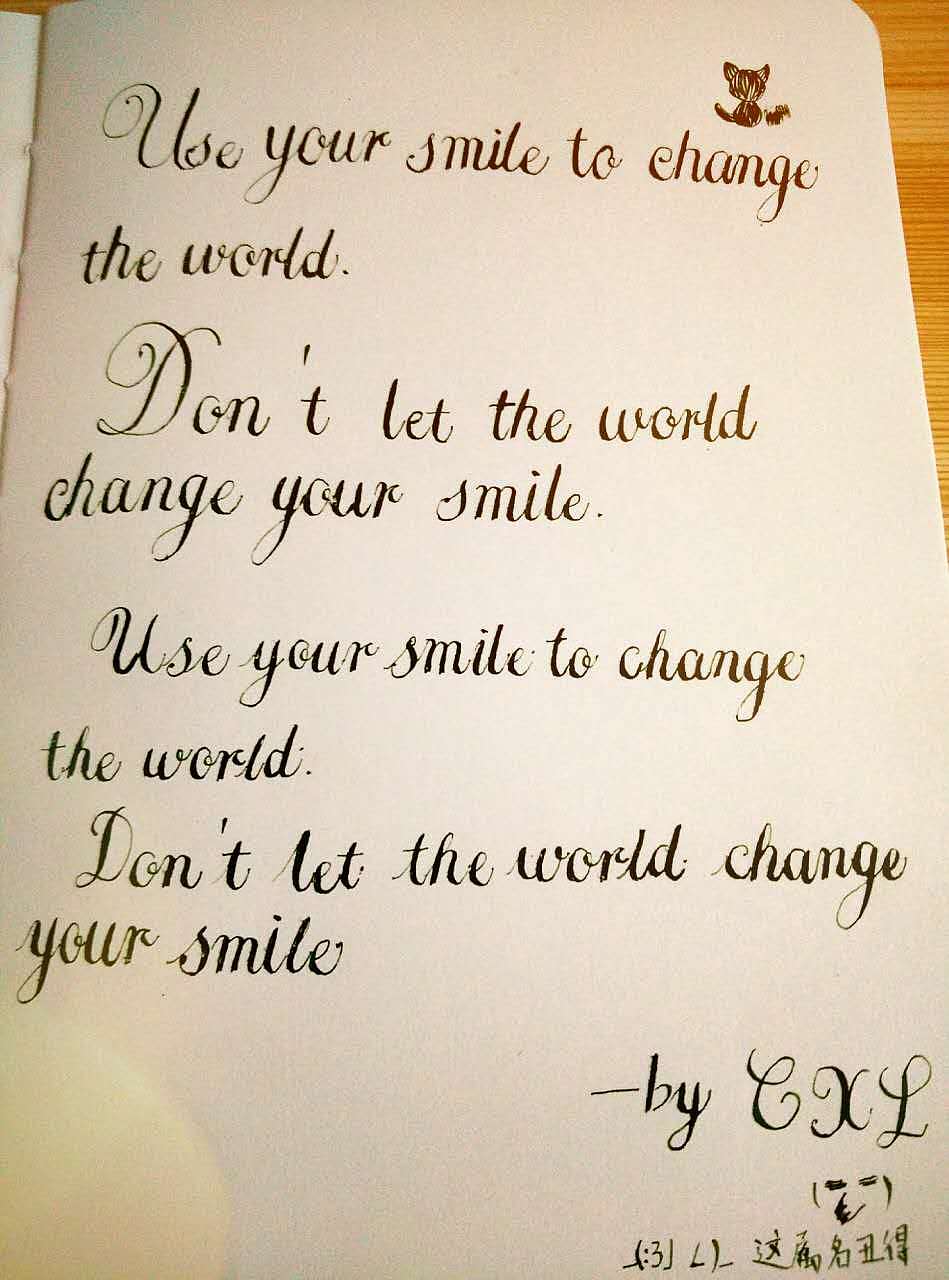 Use your smile to change
the world.
Don't let the world
change your smile.
Use your smile to change
the world.
Don't let the world change
your smile
—by CXL
(:3」∠)_ 这属名丑得